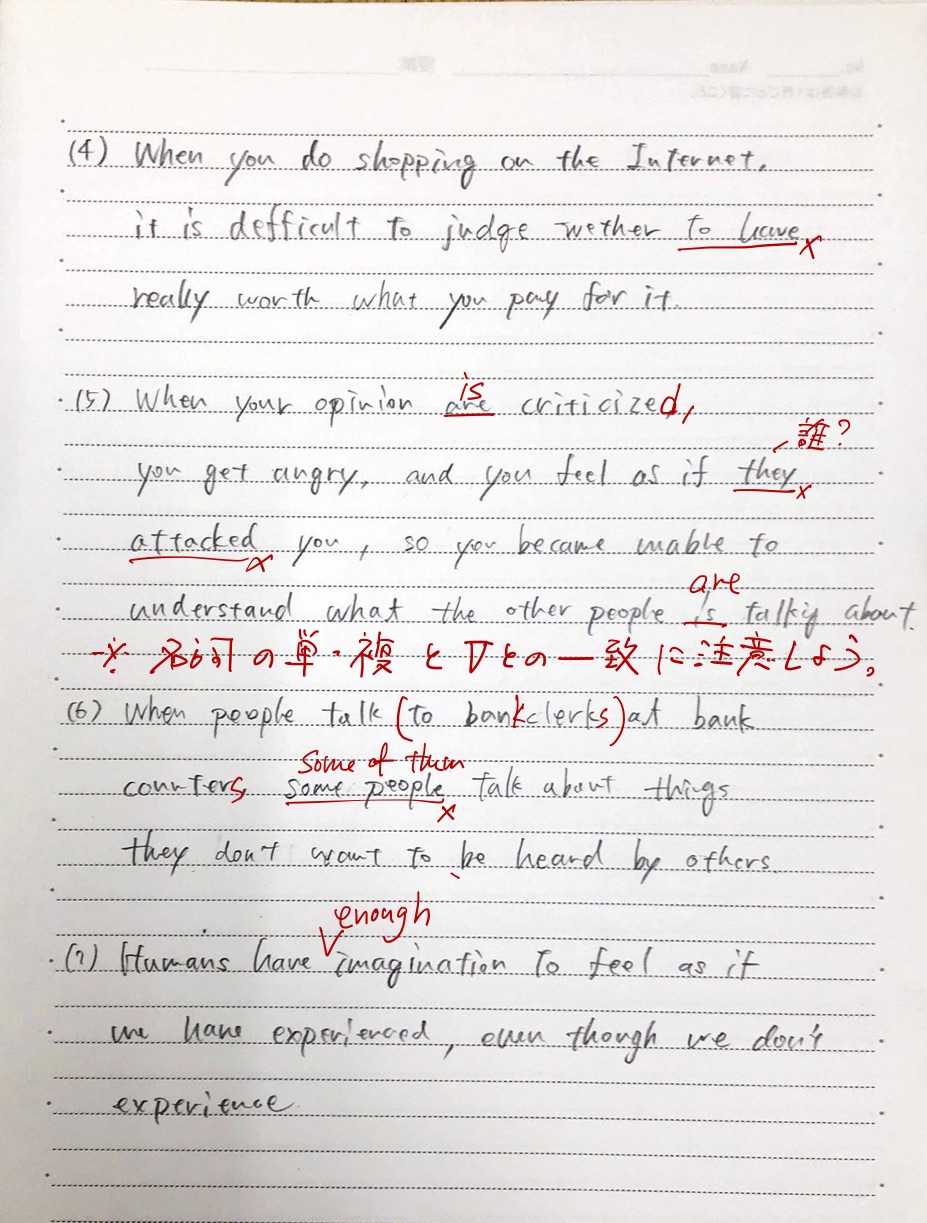 (4) When you do shopping on the Internet,
it is defficult to judge wether to have ×
really worth what you pay for it.
is
(5) When your opinion are criticized,
誰?
you get angry, and you feel as if they ×
attacked × you, so you became unable to
are
understand what the other people is talkig about.
※ 名詞の単・複とVとの一致に注意しよう。
(6) When people talk (to bankclerks) at bank
some of them
counters some people × talk about things
they don't want to be heard by others.
enough
(7) Humans have imagination to feel as if
we have experienced, even though we don't
experience.